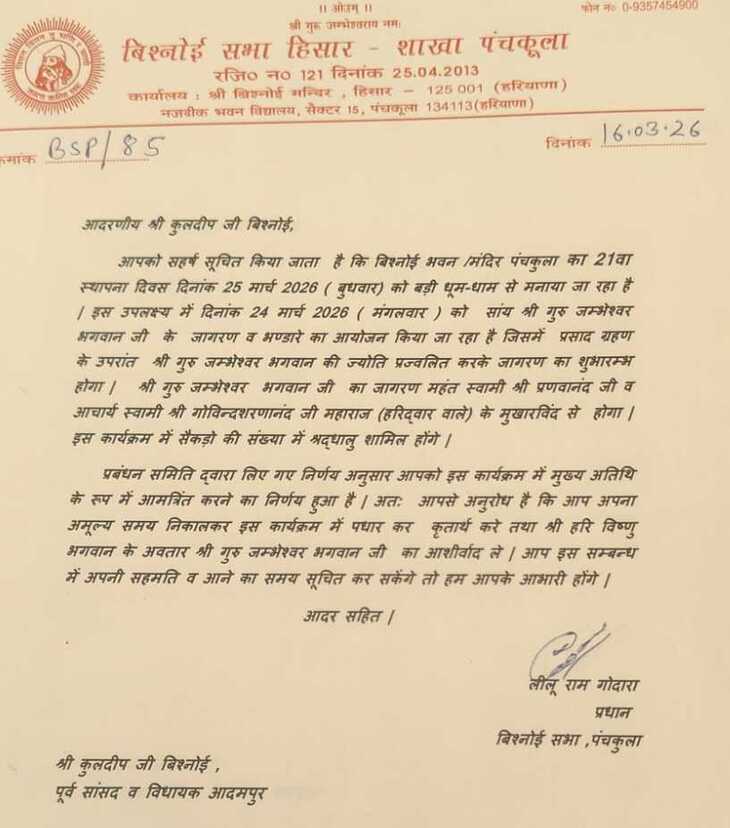 ।। ओ३म् ।।
फोन नं० 0-9357454900
श्री गुरू जम्भेश्वराय नमः
बिश्नोई सभा हिसार - शाखा पंचकूला
रजि० न० 121 दिनांक 25.04.2013
कार्यालय : श्री बिश्नोई मन्दिर , हिसार – 125 001 (हरियाणा)
नजदीक भवन विद्यालय, सैक्टर 15, पंचकूला 134113(हरियाणा)
क्रमांक BSP/85
दिनांक 16.03.26
आदरणीय श्री कुलदीप जी बिश्नोई,
आपको सहर्ष सूचित किया जाता है कि बिश्नोई भवन /मंदिर पंचकुला का 21वा
स्थापना दिवस दिनांक 25 मार्च 2026 ( बुधवार) को बड़ी धूम-धाम से मनाया जा रहा है
| इस उपलक्ष्य में दिनांक 24 मार्च 2026 ( मंगलवार ) को सांय श्री गुरु जम्भेश्वर
भगवान जी के जागरण व भण्डारे का आयोजन किया जा रहा है जिसमें प्रसाद ग्रहण
के उपरांत श्री गुरु जम्भेश्वर भगवान की ज्योति प्रज्वलित करके जागरण का शुभारम्भ
होगा | श्री गुरु जम्भेश्वर भगवान जी का जागरण महंत स्वामी श्री प्रणवानंद जी व
आचार्य स्वामी श्री गोविन्दशरणानंद जी महाराज (हरिद्वार वाले) के मुखारविंद से होगा |
इस कार्यक्रम में सैकड़ो की संख्या में श्रद्धालु शामिल होंगे |
प्रबंधन समिति द्वारा लिए गए निर्णय अनुसार आपको इस कार्यक्रम में मुख्य अतिथि
के रूप में आमत्रिंत करने का निर्णय हुआ है | अतः आपसे अनुरोध है कि आप अपना
अमूल्य समय निकालकर इस कार्यक्रम में पधार कर कृतार्थ करे तथा श्री हरि विष्णु
भगवान के अवतार श्री गुरु जम्भेश्वर भगवान जी का आशीर्वाद ले | आप इस सम्बन्ध
में अपनी सहमति व आने का समय सूचित कर सकेंगे तो हम आपके आभारी होंगे |
आदर सहित |
लीलू राम गोदारा
प्रधान
बिश्नोई सभा ,पंचकुला
श्री कुलदीप जी बिश्नोई ,
पूर्व सांसद व विधायक आदमपुर